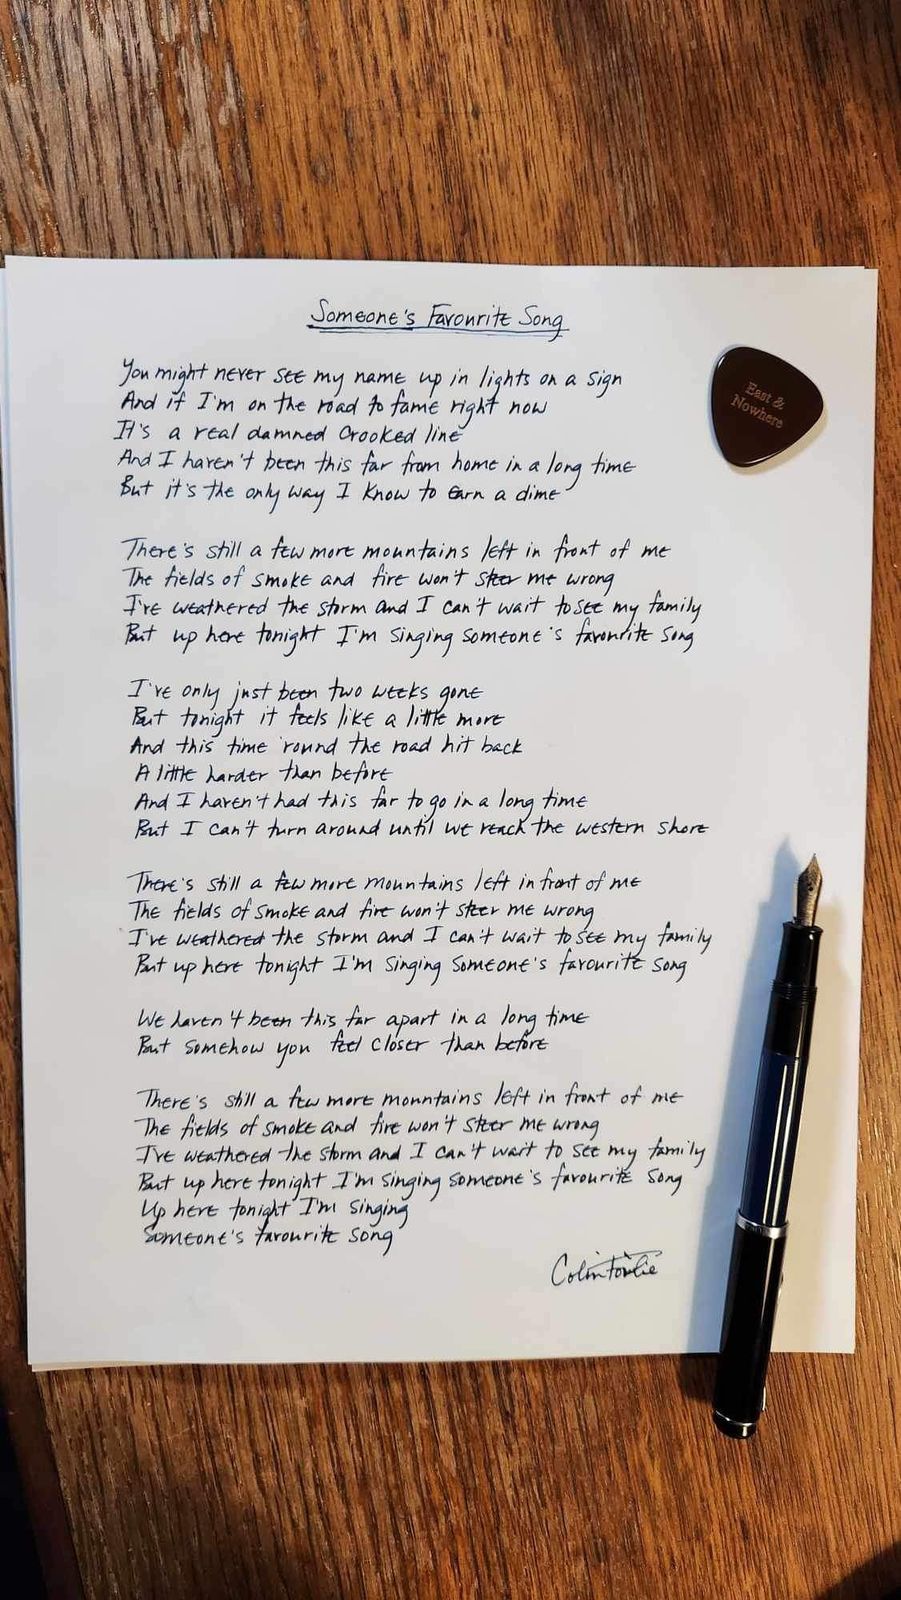 Someone's Favourite Song
You might never see my name up in lights on a sign
And if I'm on the road to fame right now
It's a real damned crooked line
And I haven't been this far from home in a long time
But it's the only way I know to earn a dime
There's still a few more mountains left in front of me
The fields of smoke and fire won't steer me wrong
I've weathered the storm and I can't wait to see my family
But up here tonight I'm singing someone's favourite song
I've only just been two weeks gone
But tonight it feels like a little more
And this time 'round the road hit back
A little harder than before
And I haven't had this far to go in a long time
But I can't turn around until we reach the western shore
There's still a few more mountains left in front of me
The fields of smoke and fire won't steer me wrong
I've weathered the storm and I can't wait to see my family
But up here tonight I'm singing someone's favourite song
We haven't been this far apart in a long time
But somehow you feel closer than before
There's still a few more mountains left in front of me
The fields of smoke and fire won't steer me wrong
I've weathered the storm and I can't wait to see my family
But up here tonight I'm singing someone's favourite song
Up here tonight I'm singing
Someone's favourite song
Colin
East &
Nowhere